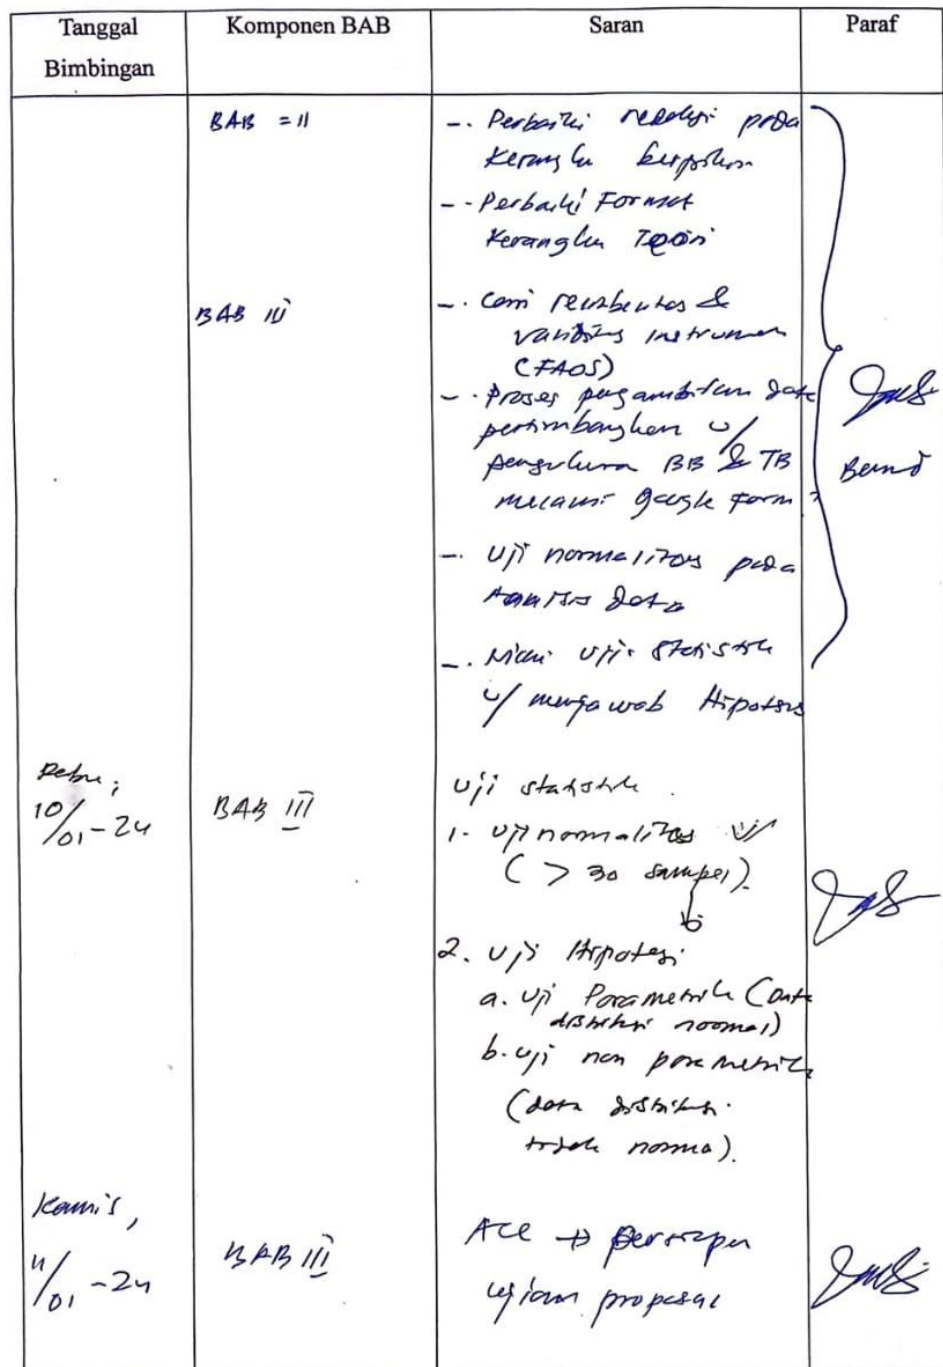 Tanggal Bimbingan
Komponen BAB
Saran
Paraf
BAB = II
-. Perbaiki redaksi pada
Kerangka berpikir
-. Perbaiki Format
Kerangka Teori
BAB III
-. Cari &
validitas instrumen
(FAOS)
-. Proses pengambilan data
pertimbangkan u/
pengukuran BB & TB
melalui google form?
-. Uji normalitas pada
Analisis data
-. Uji Statistik
u/ menjawab Hipotesis
Rabu,
10/01-24
BAB III
Uji statistik.
1. Uji normalitas
(> 30 sampel).
2. Uji Hipotesi
a. Uji Parametrik (Data
distribusi normal)
b. uji non parametrik
(data distribusi
tidak norma).
Kamis,
11/01-24
BAB III
ACC → persiapan
ujian proposal